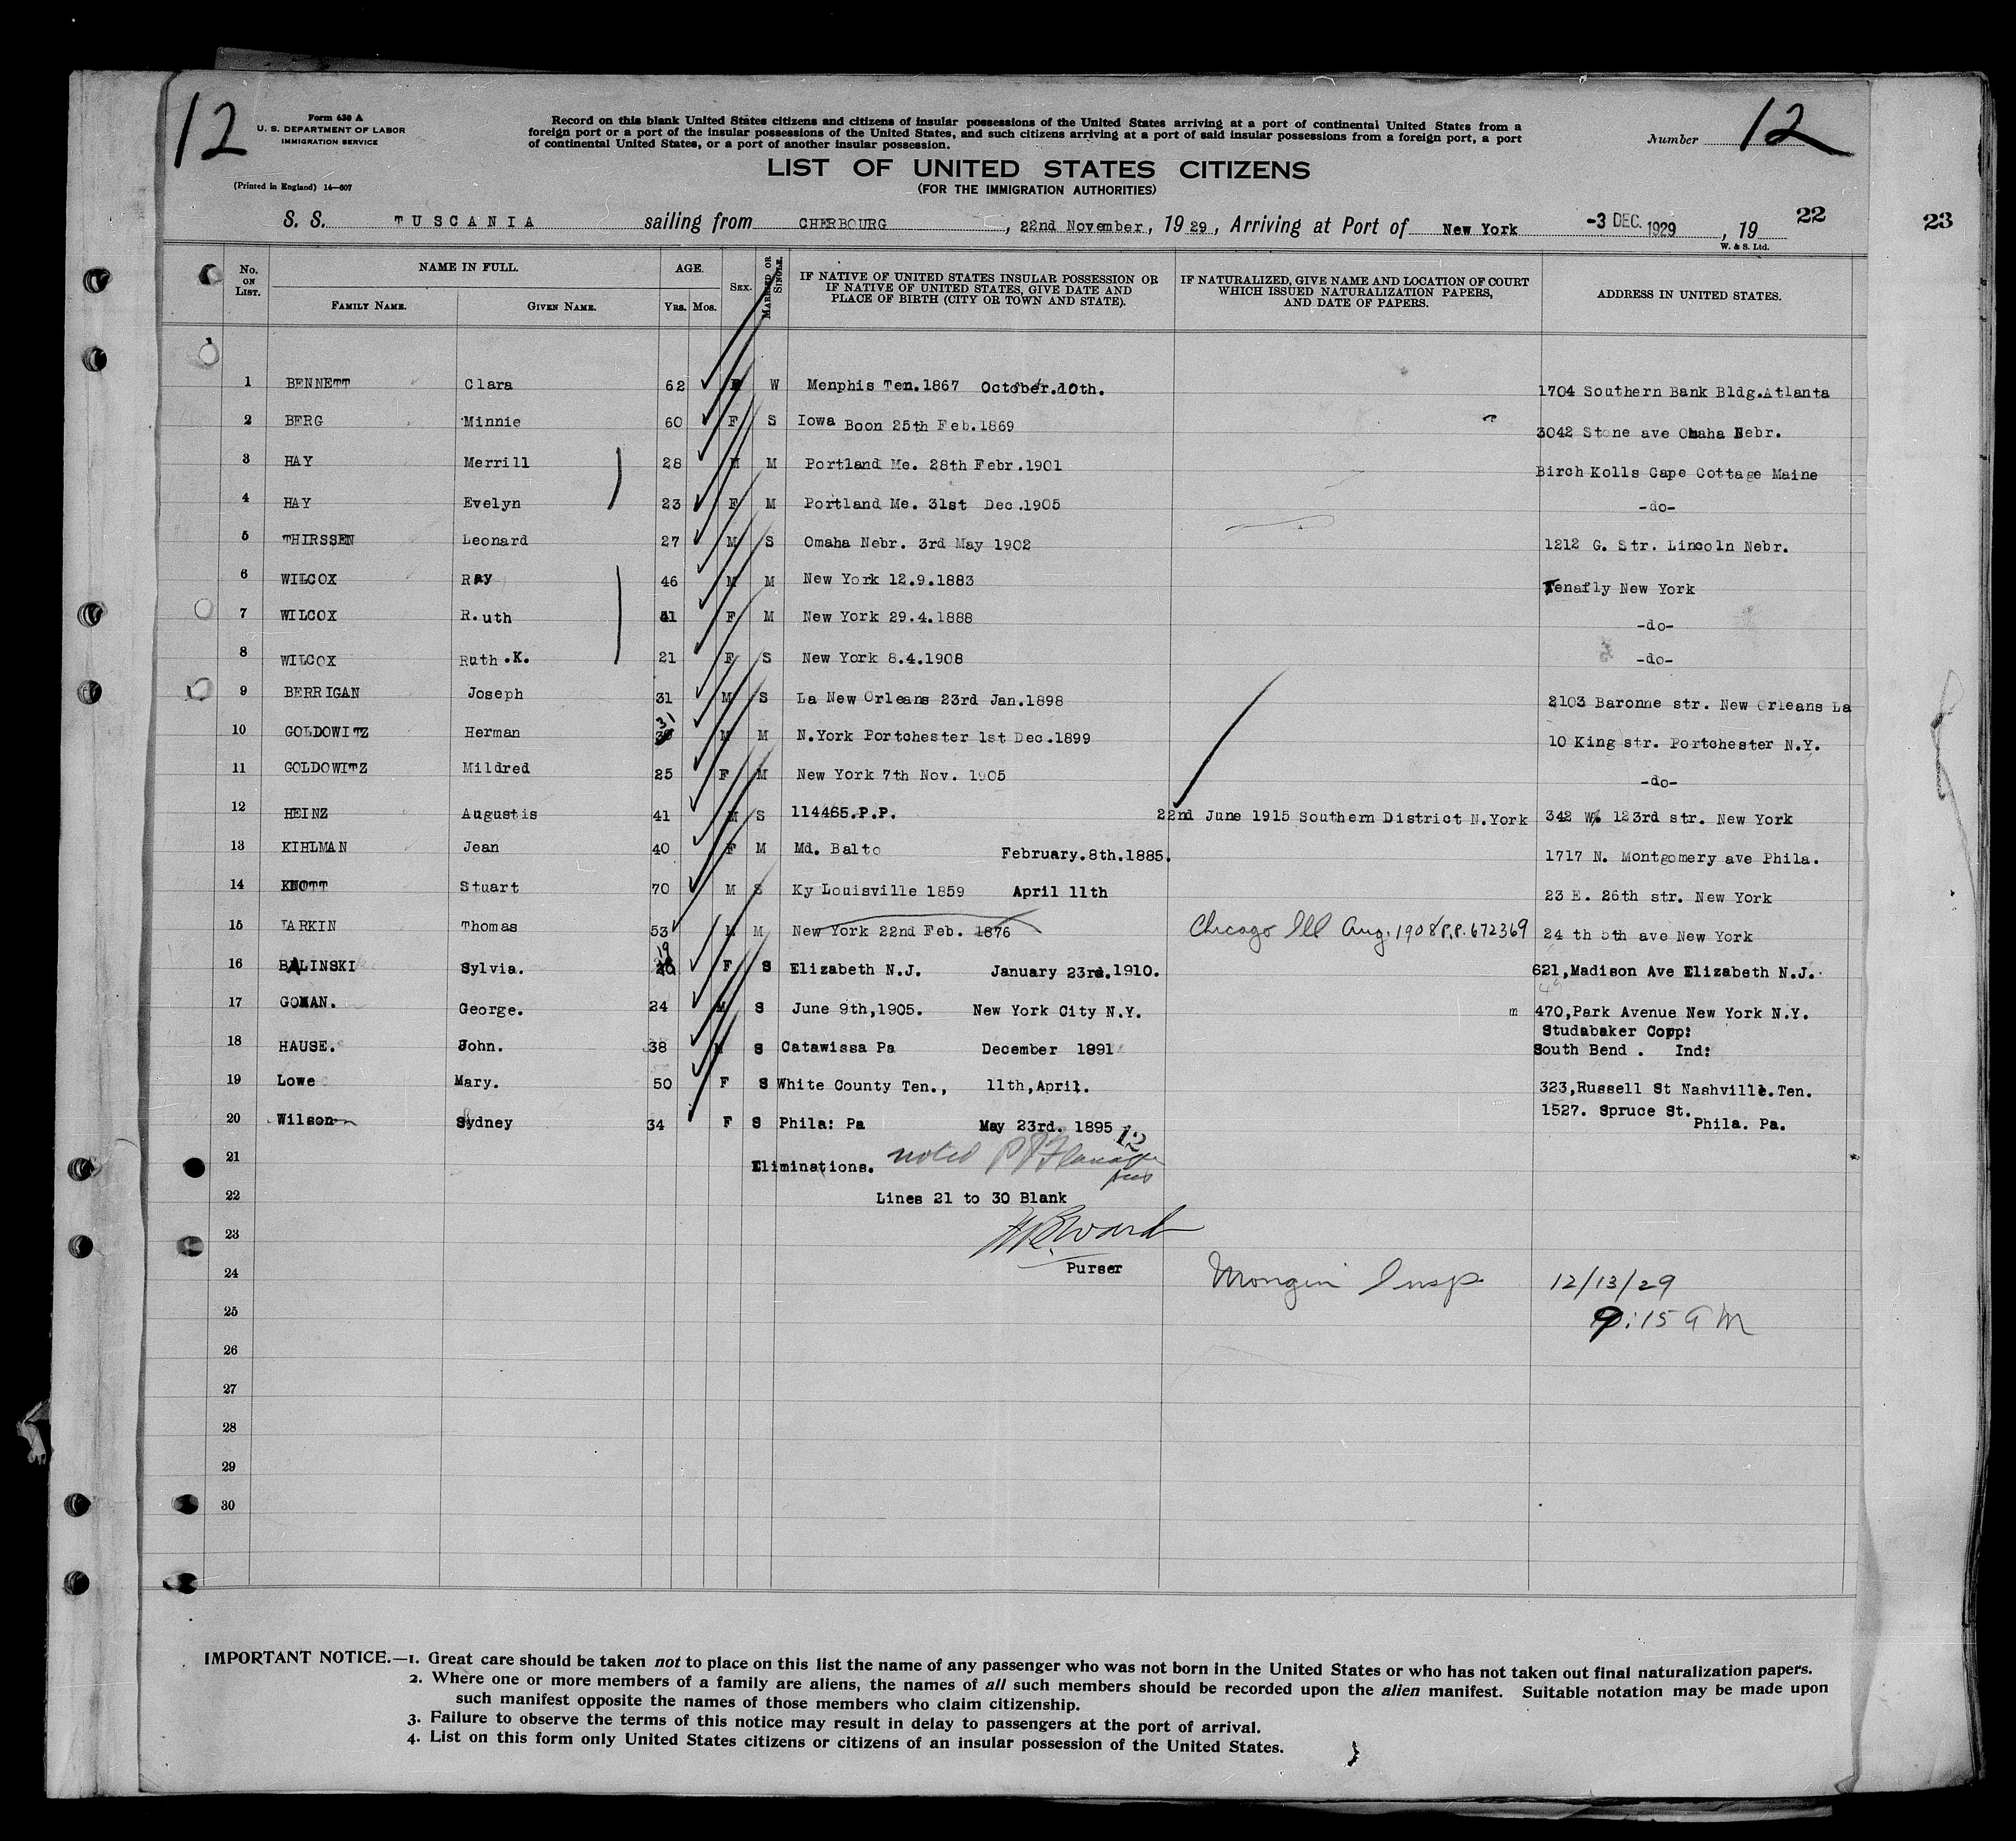 12
Form 630 A
U. S. DEPARTMENT OF LABOR
IMMIGRATION SERVICE
(Printed in England) 14—607
Record on this blank United States citizens and citizens of insular possessions of the United States arriving at a port of continental United States from a
foreign port or a port of the insular possessions of the United States, and such citizens arriving at a port of said insular possessions from a foreign port, a port
of continental United States, or a port of another insular possession.
Number 12
LIST OF UNITED STATES CITIZENS
(FOR THE IMMIGRATION AUTHORITIES)
S. S. TUSCANIA sailing from CHERBOURG, 22nd November, 1929, Arriving at Port of New York -3 DEC. 1929, 19 22 23
W. & S. Ltd.
No. ON LIST. NAME IN FULL. FAMILY NAME. GIVEN NAME. AGE. YRS. MOS. SEX. MARRIED OR SINGLE. IF NATIVE OF UNITED STATES INSULAR POSSESSION OR IF NATIVE OF UNITED STATES, GIVE DATE AND PLACE OF BIRTH (CITY OR TOWN AND STATE). IF NATURALIZED, GIVE NAME AND LOCATION OF COURT WHICH ISSUED NATURALIZATION PAPERS, AND DATE OF PAPERS. ADDRESS IN UNITED STATES.
1 BENNETT Clara 62 F W Menphis Ten.1867 October.10th. 1704 Southern Bank Bldg.Atlanta
2 BERG Minnie 60 F S Iowa Boon 25th Feb.1869 3042 Stone ave Omaha Nebr.
3 HAY Merrill 28 M M Portland Me. 28th Febr.1901 Birch Kolls Cape Cottage Maine
4 HAY Evelyn 23 F M Portland Me. 31st Dec.1905 -do-
5 THIRSSEN Leonard 27 M S Omaha Nebr. 3rd May 1902 1212 G. Str. Lincoln Nebr.
6 WILCOX Ray 46 M M New York 12.9.1883 Tenafly New York
7 WILCOX R.uth 41 F M New York 29.4.1888 -do-
8 WILCOX Ruth.K. 21 F S New York 8.4.1908 -do-
9 BERRIGAN Joseph 31 M S La New Orleans 23rd Jan.1898 2103 Baronne str. New Orleans La
10 GOLDOWITZ Herman 31 M M N.York Portchester 1st Dec.1899 10 King str. Portchester N.Y.
11 GOLDOWITZ Mildred 25 F M New York 7th Nov. 1905 -do-
12 HEINZ Augustis 41 M S 114465.P.P. 22nd June 1915 Southern District N.York 342 W. 123rd str. New York
13 KIHLMAN Jean 40 F M Md. Balto February.8th.1885. 1717 N. Montgomery ave Phila.
14 KNOTT Stuart 70 M S Ky Louisville 1859 April 11th 23 E. 26th str. New York
15 LARKIN Thomas 53 M M New York 22nd Feb. 1876 Chicago Ill Aug. 1908 P.P. 672369 24 th 5th ave New York
16 BALINSKI Sylvia. 19 F S Elizabeth N.J. January 23rd.1910. 621,Madison Ave Elizabeth N.J.
17 GOMAN. George. 24 M S June 9th,1905. New York City N.Y. m 470,Park Avenue New York N.Y.
18 HAUSE. John. 38 M S Catawissa Pa December 1891 Studabaker Copp: South Bend . Ind:
19 Lowe Mary. 50 F S White County Ten., 11th,April. 323,Russell St Nashville.Ten.
20 Wilson Sydney 34 F S Phila: Pa May 23rd. 1895 1527. Spruce St. Phila. Pa.
12
21 Eliminations. noted
22 Lines 21 to 30 Blank
23 Ward
24 Purser Insp. 12/13/29
25 9:15 AM
26
27
28
29
30
IMPORTANT NOTICE.—1. Great care should be taken not to place on this list the name of any passenger who was not born in the United States or who has not taken out final naturalization papers.
2. Where one or more members of a family are aliens, the names of all such members should be recorded upon the alien manifest. Suitable notation may be made upon
such manifest opposite the names of those members who claim citizenship.
3. Failure to observe the terms of this notice may result in delay to passengers at the port of arrival.
4. List on this form only United States citizens or citizens of an insular possession of the United States.